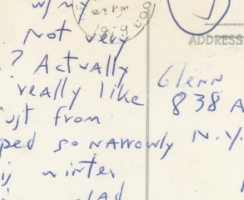 w/ my
Not very
? Actually
really like
just from
ped so narrowly
winter
glad
ADDRESS
Glenn
838 A
N.Y.